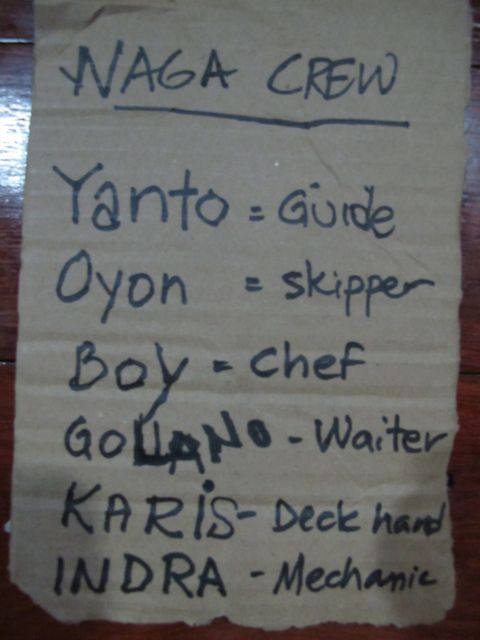 NAGA CREW
Yanto = Guide
Oyon = skipper
Boy = chef
GOLLANO - Waiter
KARiS - Deck hand
INDRA - Mechanic